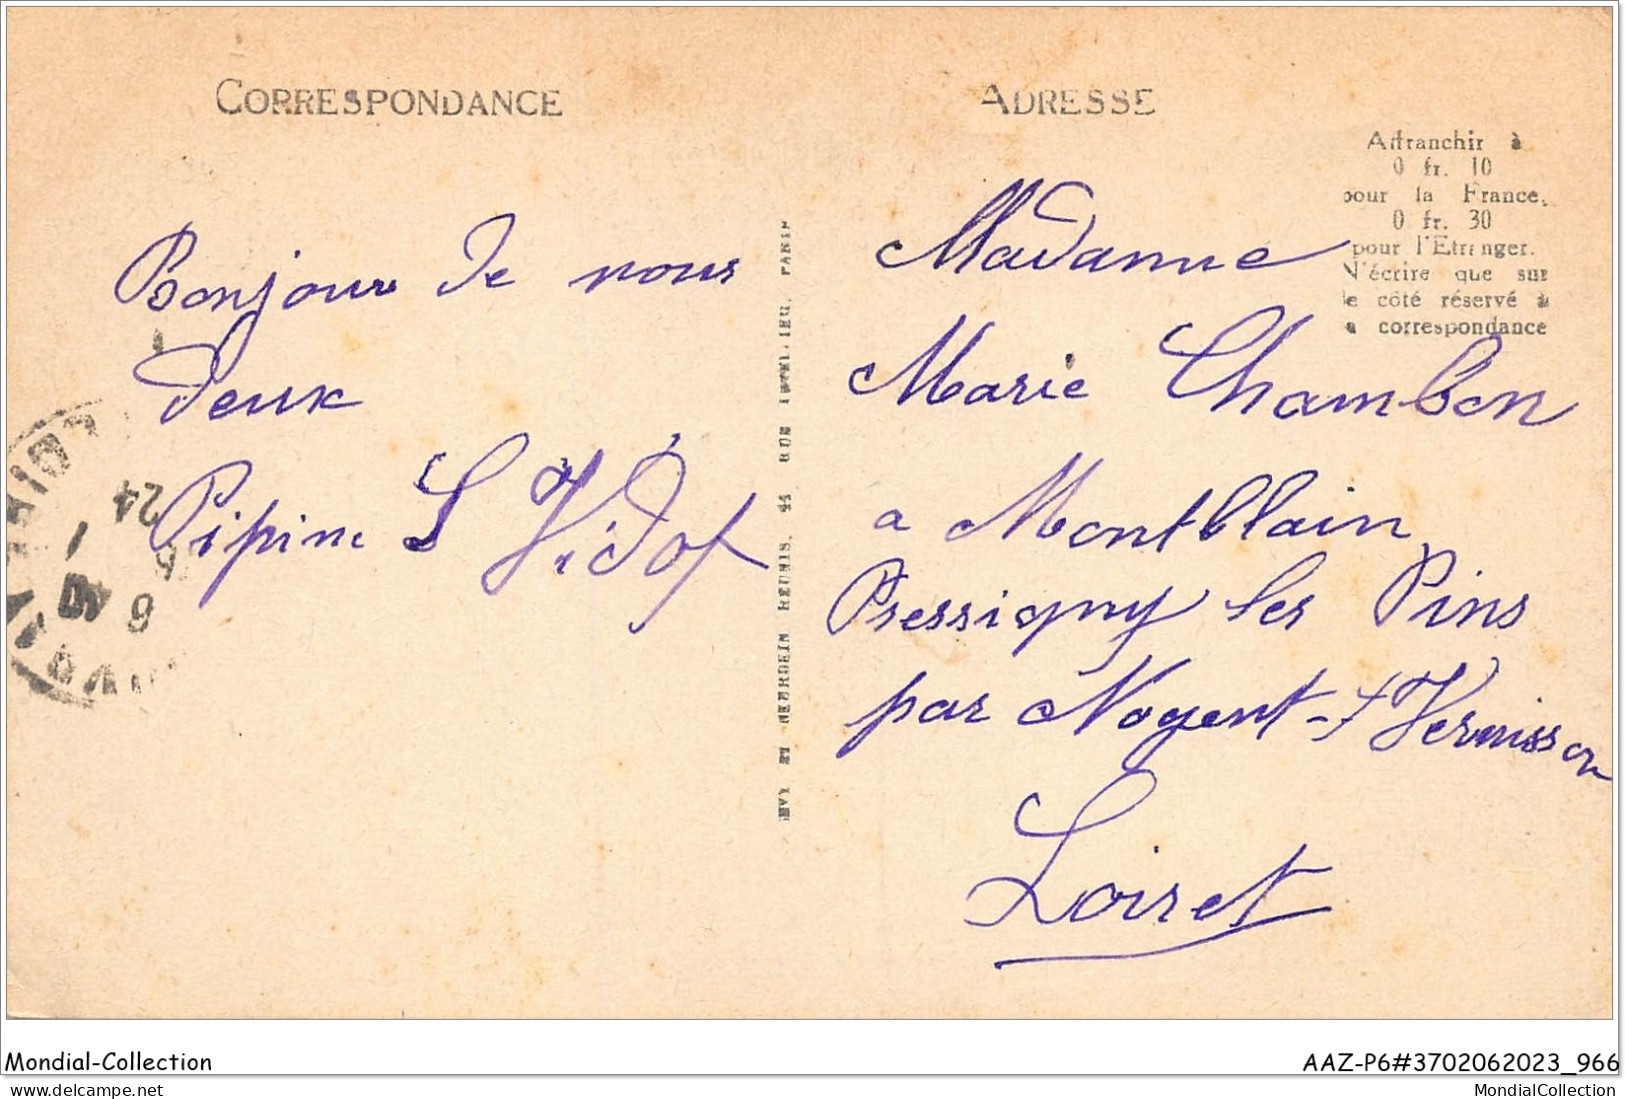 CORRESPONDANCE
Bonjour de nous
deux
Pipine
ADRESSE
Affranchir à
0 fr. 10
pour la France,
0 fr. 30
pour l'Etranger.
N'écrire que sur
le côté réservé à
la correspondance
Madame
Marie Chambon
a Montblain
Pressigny les Pins
par Nogent-s/Vernisson
Loiret
LEVY ET NEURDEIN REUNIS, 44 RUE LETELLIER, PARIS
24
Mondial-Collection
AAZ-P6#3702062023_966
MondialCollection